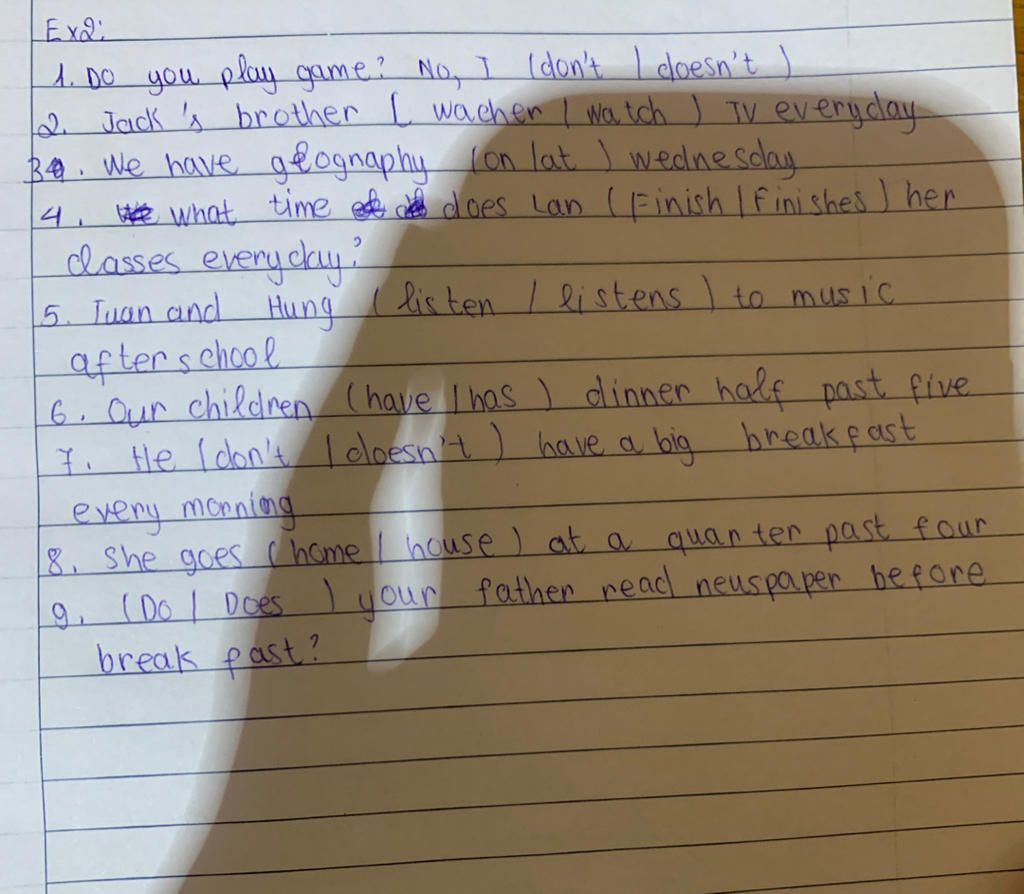 Ex2:
1. Do you play game? No, I (don't / doesn't)
2. Jack's brother ( wacher / watch ) TV everyday
3. We have geography (on / at ) wednesday
4. what time does Lan (Finish / Finishes) her
classes everyday?
5. Tuan and Hung (listen / listens) to music
after school
6. Our children (have / has ) dinner half past five
7. He (don't / doesn't ) have a big breakfast
every morning
8. She goes (home / house) at a quarter past four
9. (Do / Does ) your father read neuspaper before
break fast?